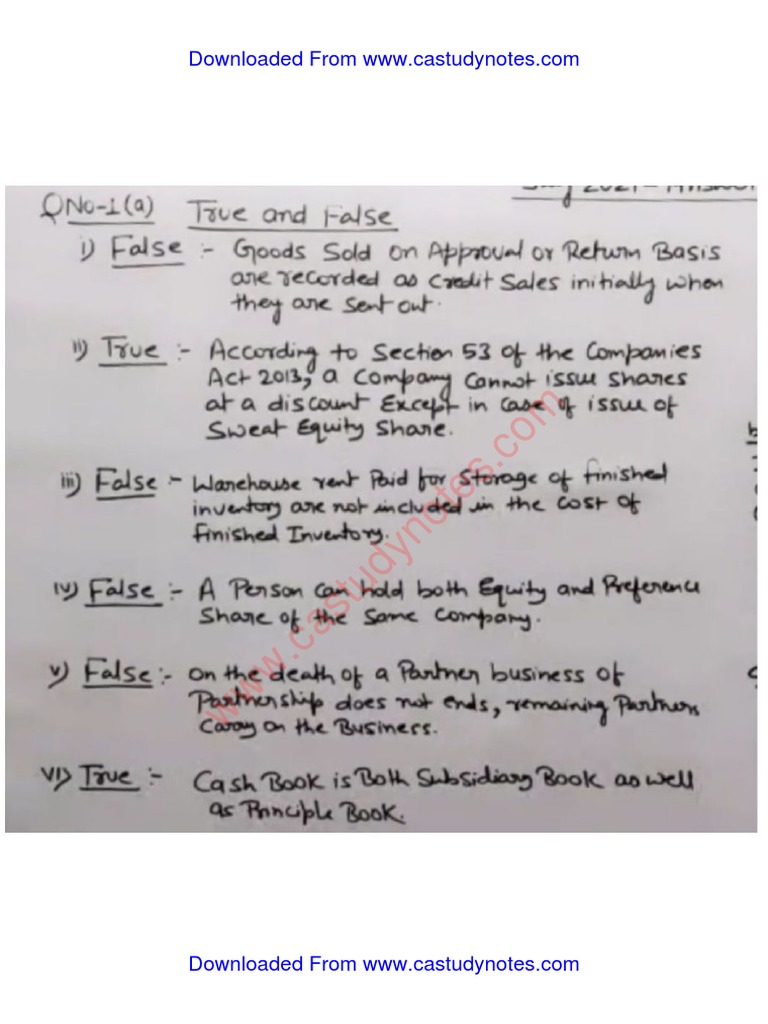 Downloaded From www.castudynotes.com
July 2021 - Answer
QNo-1(a) True and False
i) False :- Goods Sold on Approval or Return Basis
are recorded as Credit Sales initially when
they are sent out.
ii) True :- According to Section 53 of the Companies
Act 2013, a Company Cannot issue shares
at a discount Except in Case of issue of
Sweat Equity Share.
iii) False :- Warehouse rent Paid for Storage of finished
inventory are not included in the cost of
finished Inventory.
iv) False :- A Person can hold both Equity and Preference
Share of the Same Company.
v) False :- on the death of a Partner business of
Partnership does not ends, remaining Partners
Carry on the Business.
vi) True :- Cash Book is Both Subsidiary Book as well
as Principle Book.
www.castudynotes.com
Downloaded From www.castudynotes.com